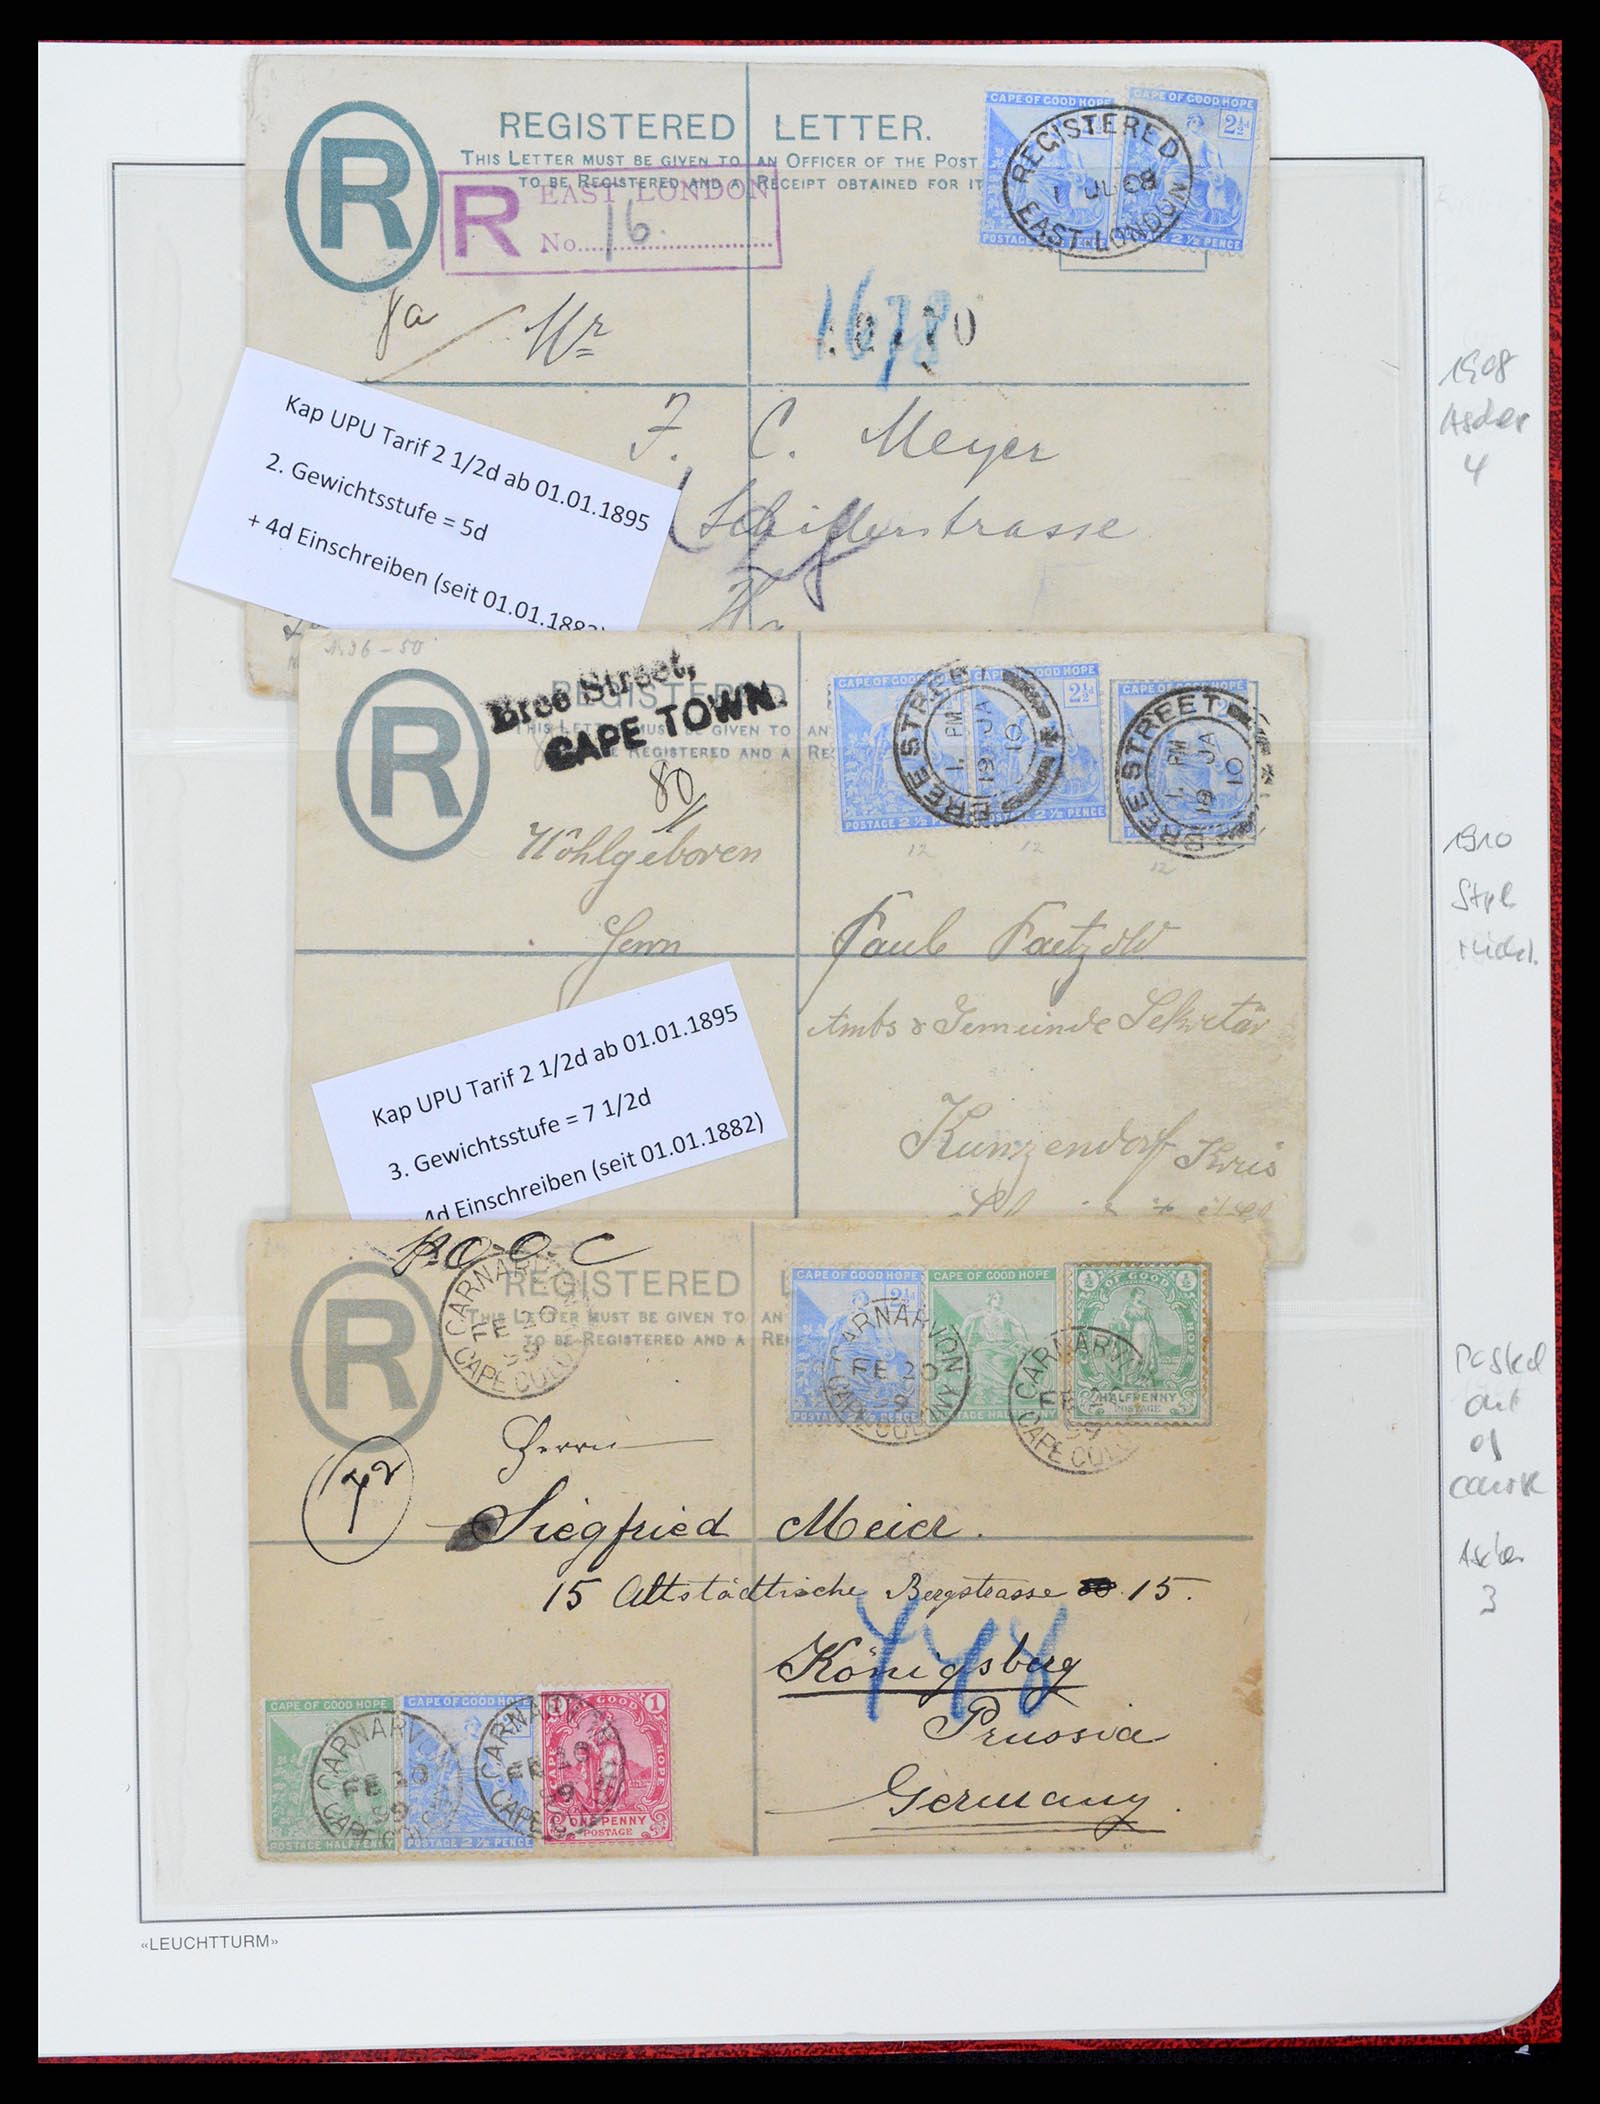 REGISTERED LETTER.
THIS LETTER MUST BE GIVEN TO AN OFFICER OF THE POST
TO BE REGISTERED AND A RECEIPT OBTAINED FOR IT
R
R EAST LONDON
No. 16.
CAPE OF GOOD HOPE
CAPE OF GOOD HOPE
2½d
POSTAGE
2½ PENCE
REGISTERED
1 JUL 08
EAST LONDON
8a
Mr
1678
J. C. Meyer
Schillerstrasse
Kap UPU Tarif 2 1/2d ab 01.01.1895
2. Gewichtsstufe = 5d
+ 4d Einschreiben (seit 01.01.1882)
1908
Ascher
4
Bree Street,
CAPE TOWN.
R
REGISTERED
THIS LETTER MUST BE GIVEN TO AN
BE REGISTERED AND A RE
80
CAPE OF GOOD HOPE
CAPE OF GOOD HOPE
2½d
POSTAGE 2½ PENCE
POSTAGE 2½ PENCE
BREE STREET
1. PM
19 JA
10
BREE STREET
1. PM
19 JA
10
12
12
12
Wohlgeboren
Herrn
Paul Paetzold
Amts & Gemeinde Sekretär
Kunzendorf Kreis
Kap UPU Tarif 2 1/2d ab 01.01.1895
3. Gewichtsstufe = 7 1/2d
4d Einschreiben (seit 01.01.1882)
1910
P.O.O.C
R
REGISTERED L
THIS LETTER MUST BE GIVEN TO AN
TO BE REGISTERED AND A REC
CARNARVON
FE 20
99
CAPE COLONY
CAPE OF GOOD HOPE
2½d
POSTAGE 2½ PENCE
CAPE OF GOOD HOPE
POSTAGE HALFPENNY
½ OF GOOD ½
HOPE
HALFPENNY
POSTAGE
CARNARVON
FE 20
99
CAPE COLONY
CARNARVON
CAPE COLO
Herrn
Siegfried Meier.
15 Altstädtische Bergstrasse 15.
Königsberg
Prussia
Germany.
448
CAPE OF GOOD HOPE
POSTAGE HALFPENNY
CAPE OF GOOD HOPE
POSTAGE 2½ PENCE
OF GOOD 1
CAPE
HOPE
ONE PENNY
POSTAGE
CARNARVON
FE 20
99
CARNARVON
FE 20
99
CAPE
Posted
out
of
course
Ascher
3
«LEUCHTTURM»